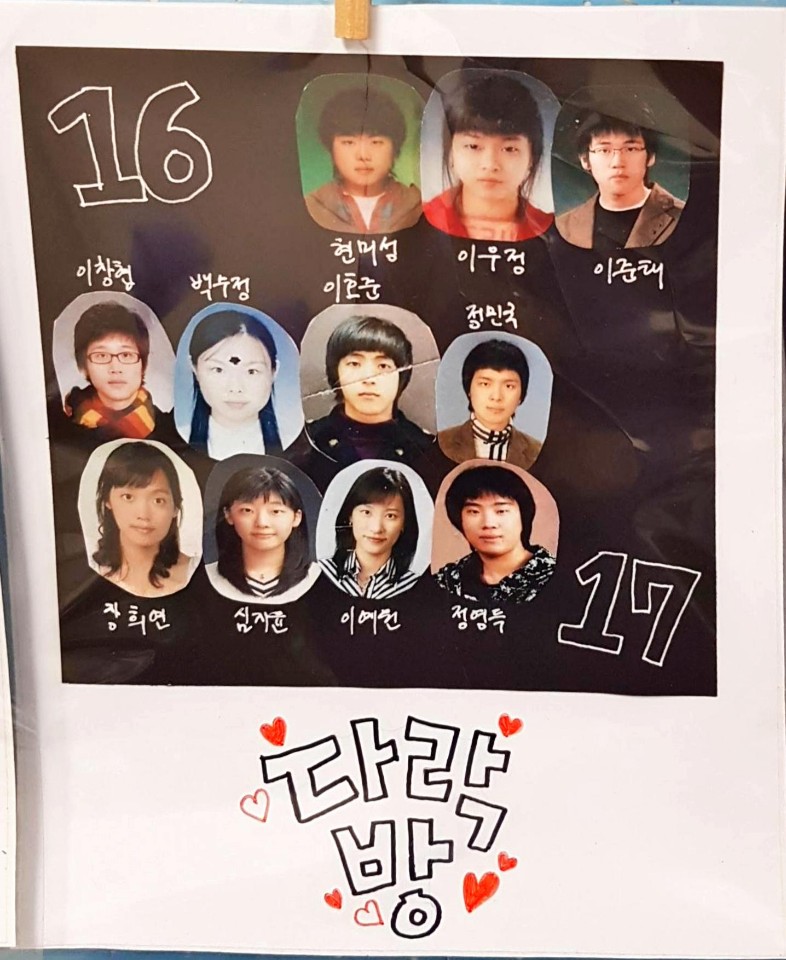 16
현머섬 이우정 이준태
이창협 백수정 이호준 정민국
장희연 심자윤 이예원 정영득
17
다락
방